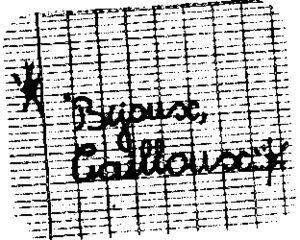 Bijoux,
Cailloux